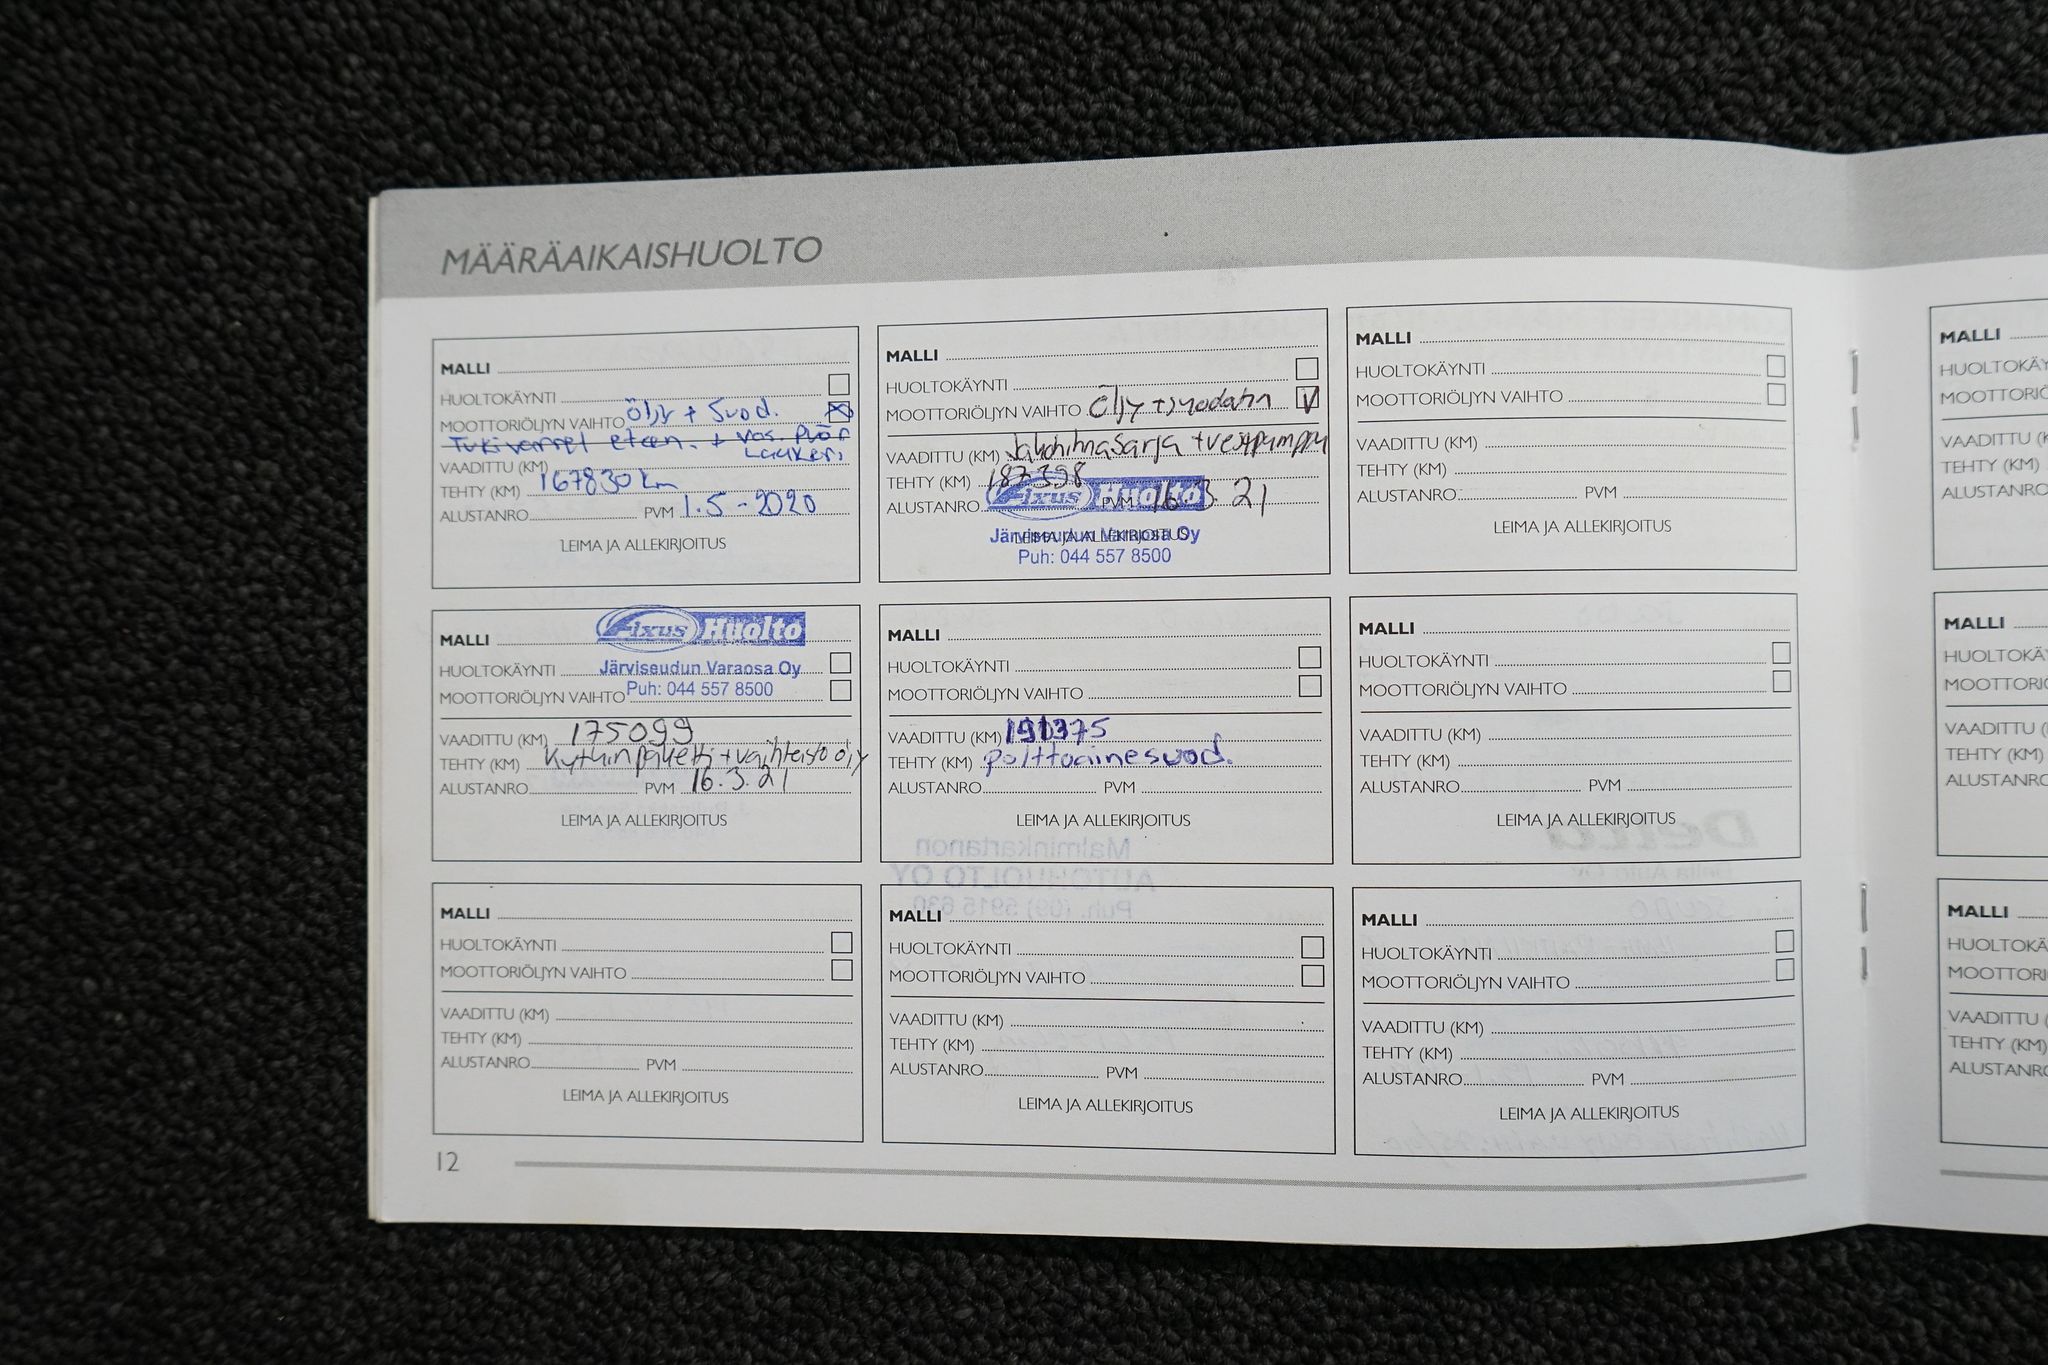 MÄÄRÄAIKAISHUOLTO
MALLI
HUOLTOKÄYNTI
MOOTTORIÖLJYN VAIHTO öljy + Suod.
Tukivarret eteen. + vas. pyör
Laakeri
VAADITTU (KM)
TEHTY (KM) 167830 km
ALUSTANRO PVM 1.5-2020
LEIMA JA ALLEKIRJOITUS
MALLI
HUOLTOKÄYNTI
MOOTTORIÖLJYN VAIHTO Öljy + suodatin
VAADITTU (KM) Jakohihnasarja + vesipumppu
TEHTY (KM) 187398
Fixus Huolto
ALUSTANRO PVM 16.3.21
Järviseudun Varaosa Oy
LEIMA JA ALLEKIRJOITUS
Puh: 044 557 8500
MALLI
HUOLTOKÄYNTI
MOOTTORIÖLJYN VAIHTO
VAADITTU (KM)
TEHTY (KM)
ALUSTANRO PVM
LEIMA JA ALLEKIRJOITUS
MALLI
HUOLTOKÄ
MOOTTORIÖ
VAADITTU (K
TEHTY (KM)
ALUSTANRO
Fixus Huolto
MALLI
HUOLTOKÄYNTI Järviseudun Varaosa Oy
MOOTTORIÖLJYN VAIHTO Puh: 044 557 8500
VAADITTU (KM) 175099
TEHTY (KM) Kytkinpaketti + vaihteisto öljy
ALUSTANRO PVM 16.3.21
LEIMA JA ALLEKIRJOITUS
MALLI
HUOLTOKÄYNTI
MOOTTORIÖLJYN VAIHTO
VAADITTU (KM)
TEHTY (KM) polttoainesuod.
ALUSTANRO PVM
LEIMA JA ALLEKIRJOITUS
MALLI
HUOLTOKÄYNTI
MOOTTORIÖLJYN VAIHTO
VAADITTU (KM)
TEHTY (KM)
ALUSTANRO PVM
LEIMA JA ALLEKIRJOITUS
MALLI
HUOLTOKÄY
MOOTTORIÖ
VAADITTU (
TEHTY (KM)
ALUSTANRO
MALLI
HUOLTOKÄYNTI
MOOTTORIÖLJYN VAIHTO
VAADITTU (KM)
TEHTY (KM)
ALUSTANRO PVM
LEIMA JA ALLEKIRJOITUS
MALLI
HUOLTOKÄYNTI
MOOTTORIÖLJYN VAIHTO
VAADITTU (KM)
TEHTY (KM)
ALUSTANRO PVM
LEIMA JA ALLEKIRJOITUS
MALLI
HUOLTOKÄYNTI
MOOTTORIÖLJYN VAIHTO
VAADITTU (KM)
TEHTY (KM)
ALUSTANRO PVM
LEIMA JA ALLEKIRJOITUS
MALLI
HUOLTOKÄ
MOOTTORI
VAADITTU (
TEHTY (KM)
ALUSTANRO
12